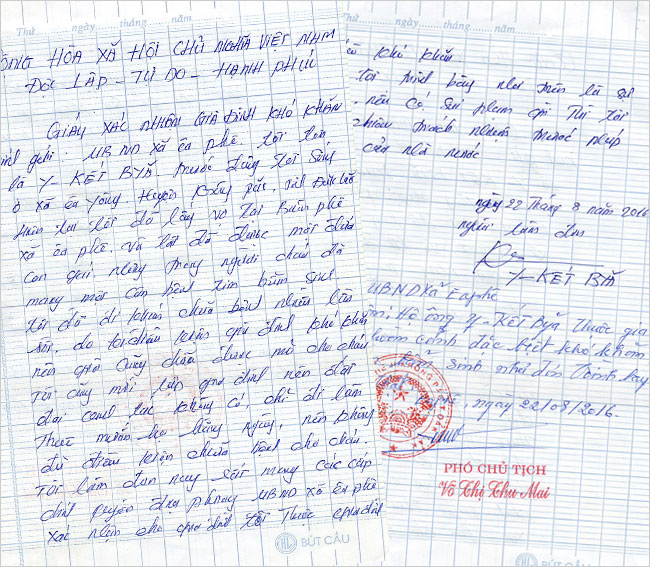 Thứ ngày tháng năm
CỘNG HÒA XÃ HỘI CHỦ NGHĨA VIỆT NAM
ĐỘC LẬP - TỰ DO - HẠNH PHÚC
GIẤY XÁC NHẬN GIA ĐÌNH KHÓ KHĂN
gửi UBND xã ea phê. tôi tên
là Y-KẾT BYĂ. trước đây tôi sống
ở xã ea yông, Huyện Krông păk, tỉnh Đăk Lăk
Hiện tại tôi đã lấy vợ tại Buôn phê
xã ea phê và tôi đã được một đứa
con gái, nhưng trong người cháu đã
mang một căn bệnh tim bẩm sinh
tôi đã đi khám chữa bệnh nhiều lần
rồi, do điều kiện gia đình khó khăn
nên gia cũng chưa được mổ cho cháu
Tôi cũng mới lập gia đình nên đất
đai canh tác không có, chỉ đi làm
Thuê mướn họ hàng ngày, nên không
đủ điều kiện chữa bệnh cho cháu.
Tôi làm đơn này rất mong các cấp
chính quyền địa phương UBND xã ea phê
xác nhận cho gia đình tôi Thuộc gia đình
BÚT CẦU
Thứ ngày tháng năm
khó khăn
tôi trình bày như trên là sự
nếu có sai phạm gì Thì tôi
chịu trách nhiệm trước pháp
của nhà nước
ngày 22 Tháng 8 năm 2016
người làm đơn
Y-KẾT BYĂ
UBND Xã Eaphê
Hộ ông Y-Kết Byă thuộc gia
hoàn cảnh đặc biệt khó khăn
sinh như đơn trình bày
, ngày 22/08/2016.
PHÓ CHỦ TỊCH
Võ Thị Thu Mai
BÚT CẦU